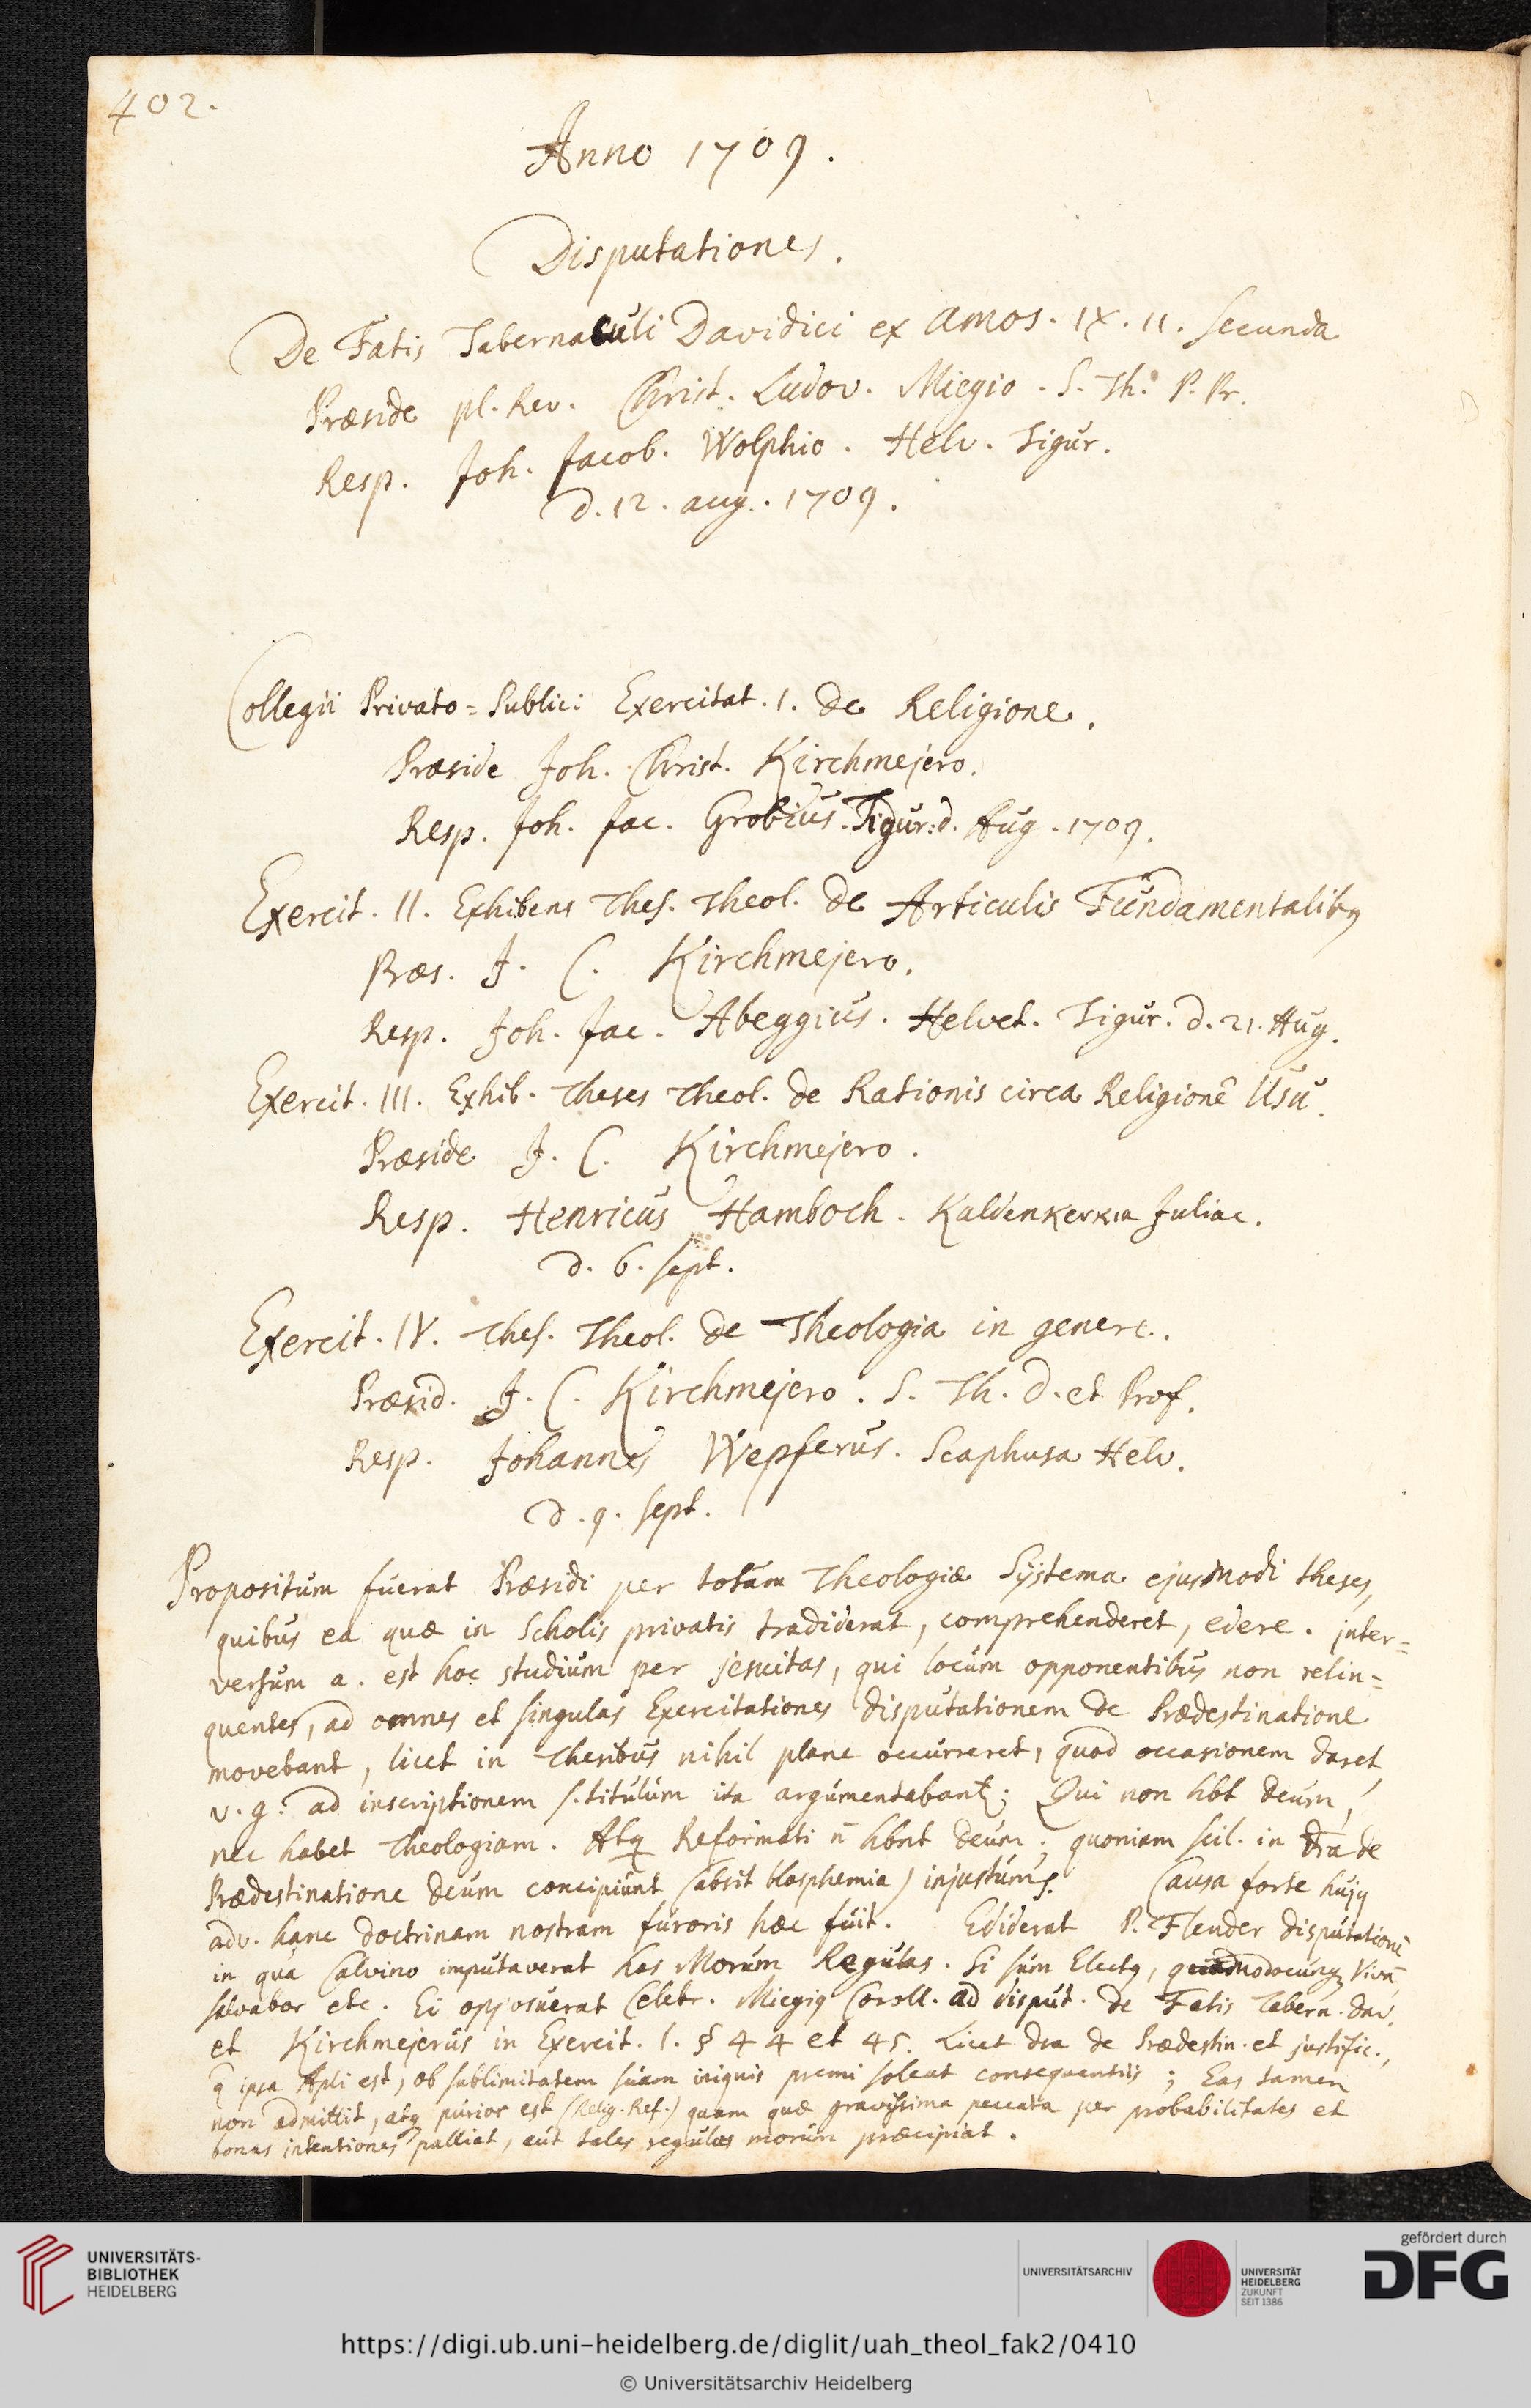 402.
Anno 1709.
Disputationes.
De Fatis Tabernaculi Davidici ex Amos. IX. 11. secunda
Præside pl. Rev. Christ. Ludov. Miegio. S. Th. P. Pr.
Resp. Joh. Jacob. Wolphio. Helv. Tigur.
d. 12. aug. 1709.
Collegii Privato=Publici Exercitat. 1. de Religione.
Præside Joh. Christ. Kirchmejero.
Resp. Joh. Jac. Grobius. Tigur. d. Aug. 1709.
Exercit. II. Exhibens Thes. Theol. de Articulis Fundamentalibꝰ
Præs. J. C. Kirchmejero.
Resp. Joh. Jac. Abeggius. Helvet. Tigur. d. 21. Aug.
Exercit. III. Exhib. Theses Theol. de Rationis circa Religionē Usu.
Præside J. C. Kirchmejero.
Resp. Henricus Hamboch. Kaldenkerkia Juliac.
d. 6. sept.
Exercit. IV. Thes. Theol. de Theologia in genere.
Præsid. J. C. Kirchmejero. S. Th. D. et Prof.
Resp. Johannes Wepferus. Scaphusa Helv.
d. 9. sept.
Propositum fuerat Præsidi per totam Theologiæ Systema ejusmodi theses,
quibus ea quæ in Scholis privatis tradiderat, comprehenderet, edere. inter=
versum a. est hoc studium per jesuitas, qui locum opponentibus non relin=
quentes, ad omnes et singulas Exercitationes disputationem de Prædestinatione
movebant, licet in Thesibus nihil plane occurreret, quod occasionem daret
v. g. ad inscriptionem s. titulum ita argumentabant: Qui non hbt deum,
nec habet Theologiam. Atq Reformati n̄ hbnt deum; quoniam scil. in dra de
Prædestinatione deum concipiunt (absit blasphemia) injustum. Causa forte hujꝰ
adv. hanc doctrinam nostram furoris hæc fuit. Ediderat P. Flender disputationē
in qua Calvino imputaverat has Morum Regulas. Si sum Electꝰ, quomodocunq vivā
salvabor etc. Ei opposuerat Celebr. Miegiꝰ Coroll. ad disput. de Fatis Tabern. Dav.
et Kirchmejerus in Exercit. 1. § 44 et 45. Licet dra de Prædestin. et justific.,
q ipsa Apli est, ob sublimitatem suam iniquis premi soleat consequentiis; Eas tamen
non admittit, atq purior est (Relig. Ref.) quam quæ gravissima peccata per probabilitates et
bonas intentiones palliat, aut tales regulas morum præcipiat.
UNIVERSITÄTS-
BIBLIOTHEK
HEIDELBERG
UNIVERSITÄTSARCHIV
UNIVERSITÄT
HEIDELBERG
ZUKUNFT
SEIT 1386
gefördert durch
DFG
https://digi.ub.uni-heidelberg.de/diglit/uah_theol_fak2/0410
© Universitätsarchiv Heidelberg